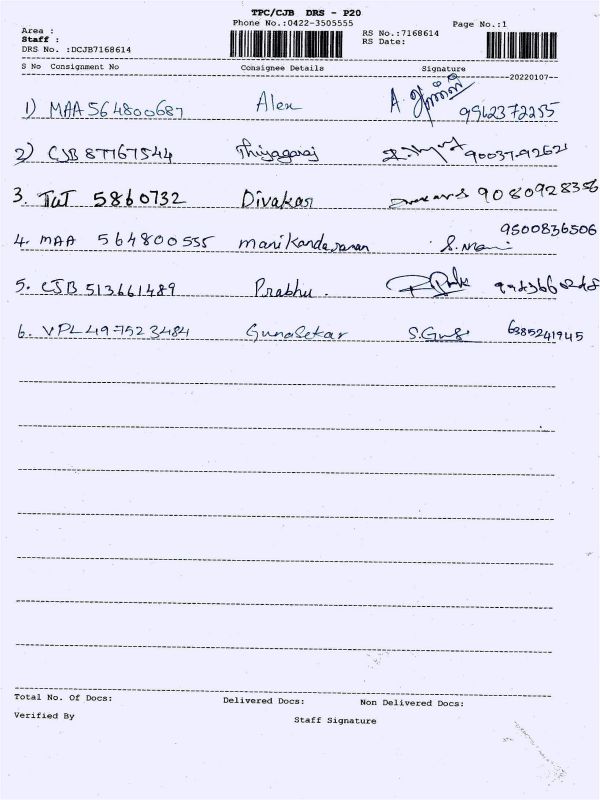 TPC/CJB DRS - P20
Phone No.:0422-3505555 Page No.:1
Area :
Staff : RS No.:7168614
DRS No. :DCJB7168614 RS Date:
S No Consignment No Consignee Details Signature
20220107
1) MAA564800687 Alex A. 9962372255
2) CJB 87767544 Thiyagaraj
3. TWT 5860732 Divakar 9080928356
4. MAA 564800555 manikandaraman S. Mani 9500836506
5. CJB 513661489 Prabhu.
6. VPL497523484 Gunasekar S.Guns 6385241945
Total No. Of Docs: Delivered Docs: Non Delivered Docs:
Verified By Staff Signature